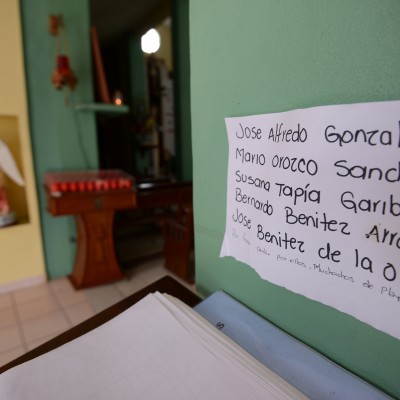 Jose Alfredo Gonzal
Mario Orozco Sand
Susana Tapia Garib
Bernardo Benitez Arr
Jose Benitez de la O
por ellos, Muchachos de